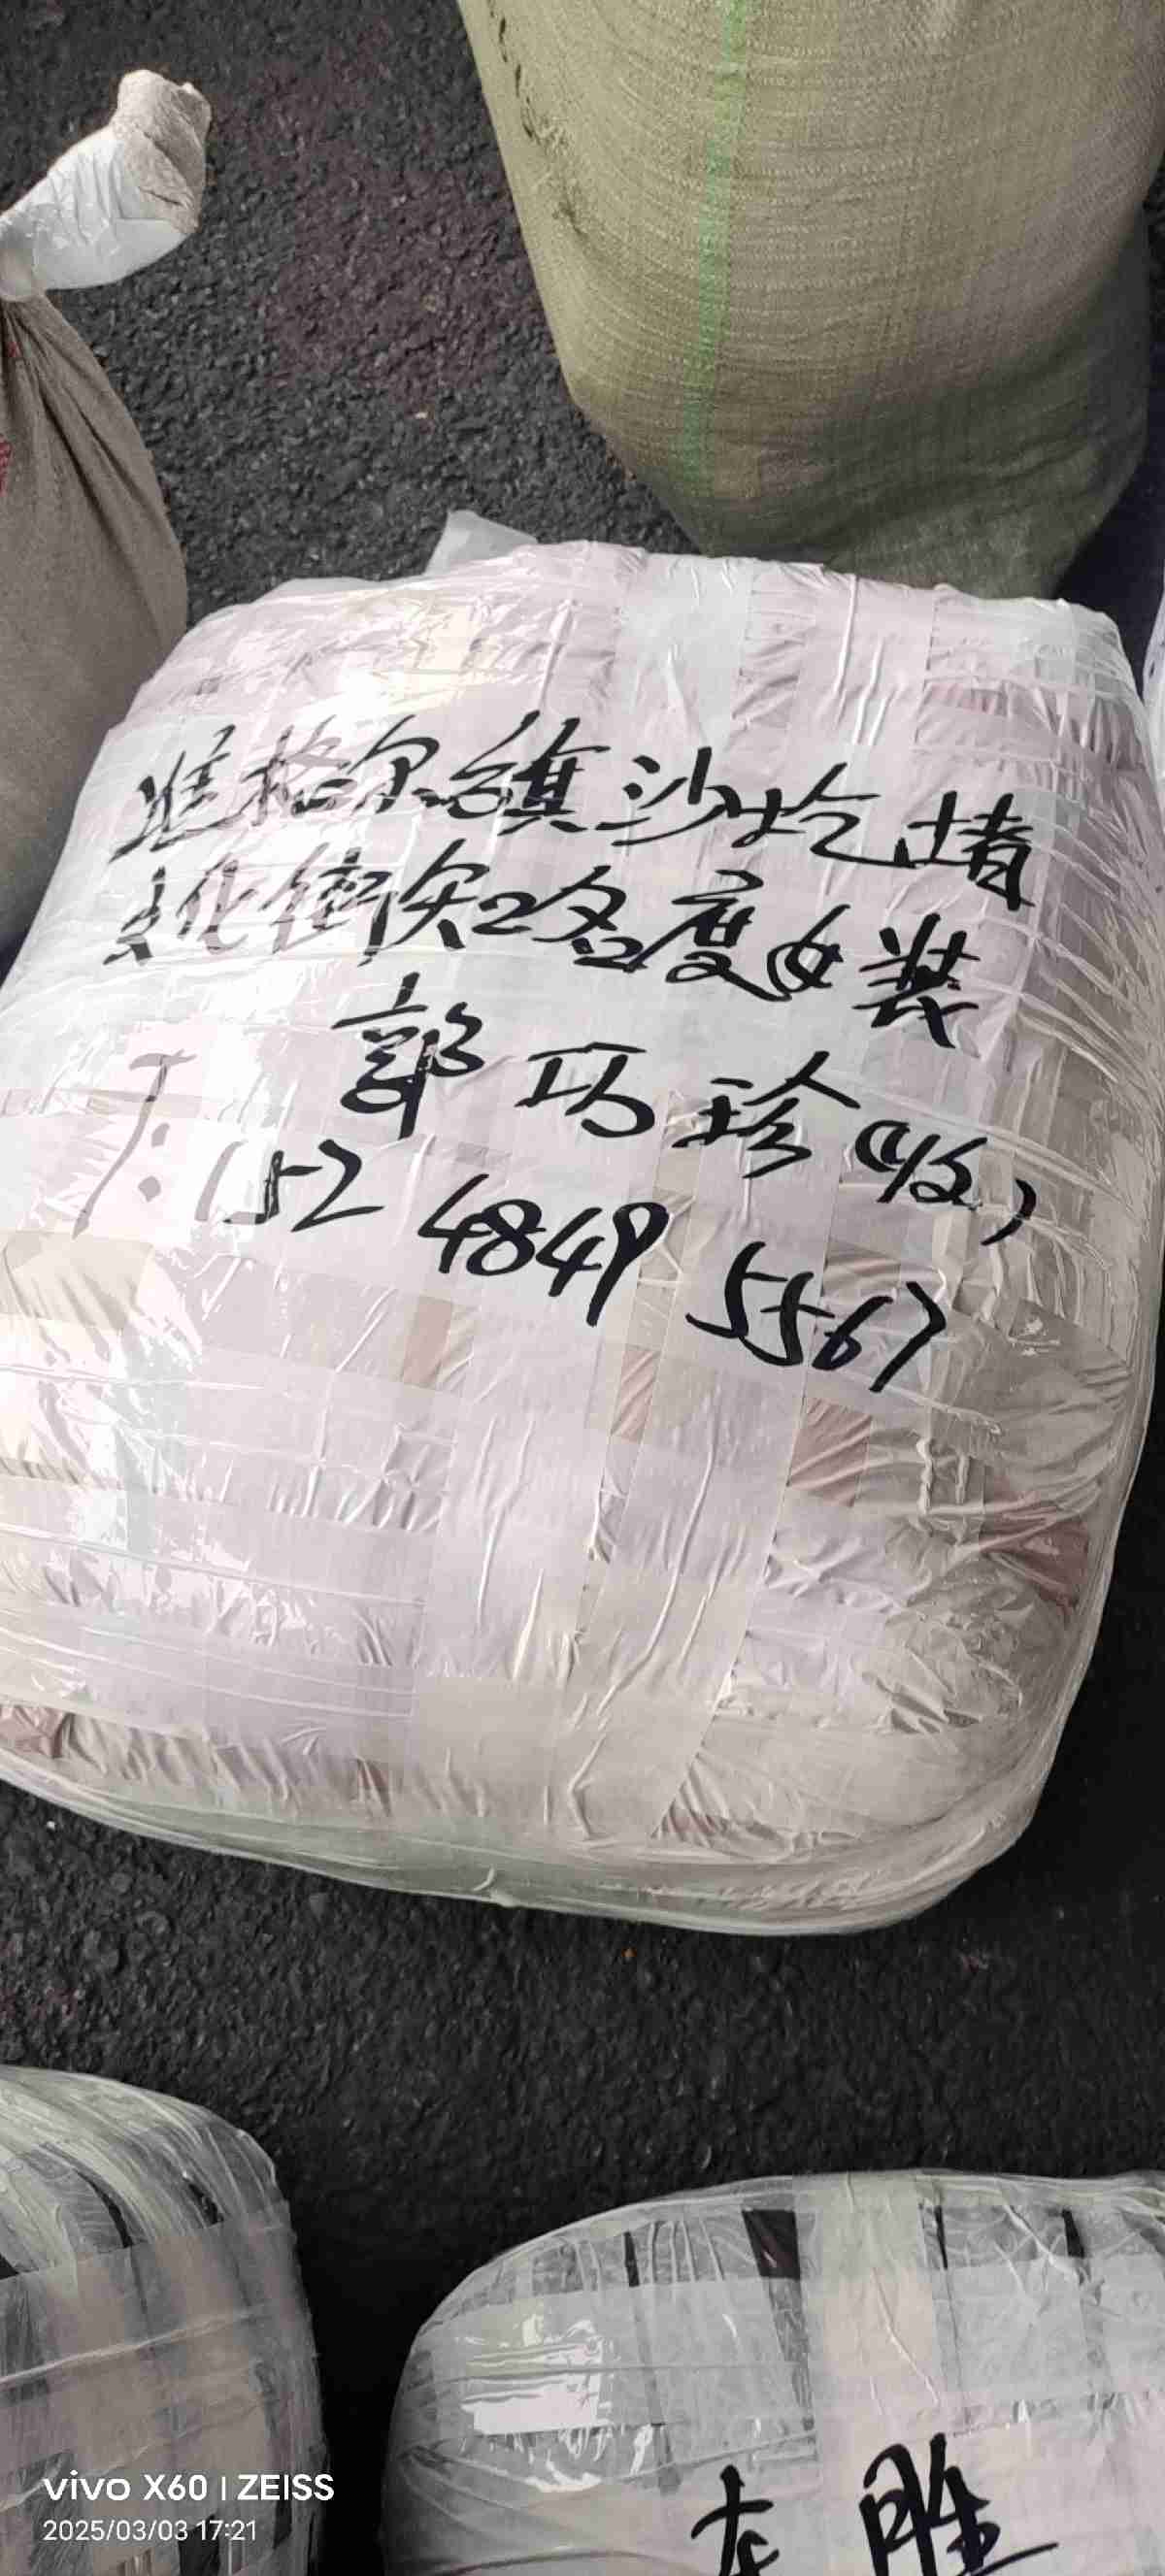 准格尔旗沙圪堵
文化街知名度女装
郭巧珍(收)
T: 152 4849 5567
东胜
vivo X60 | ZEISS
2025/03/03 17:21